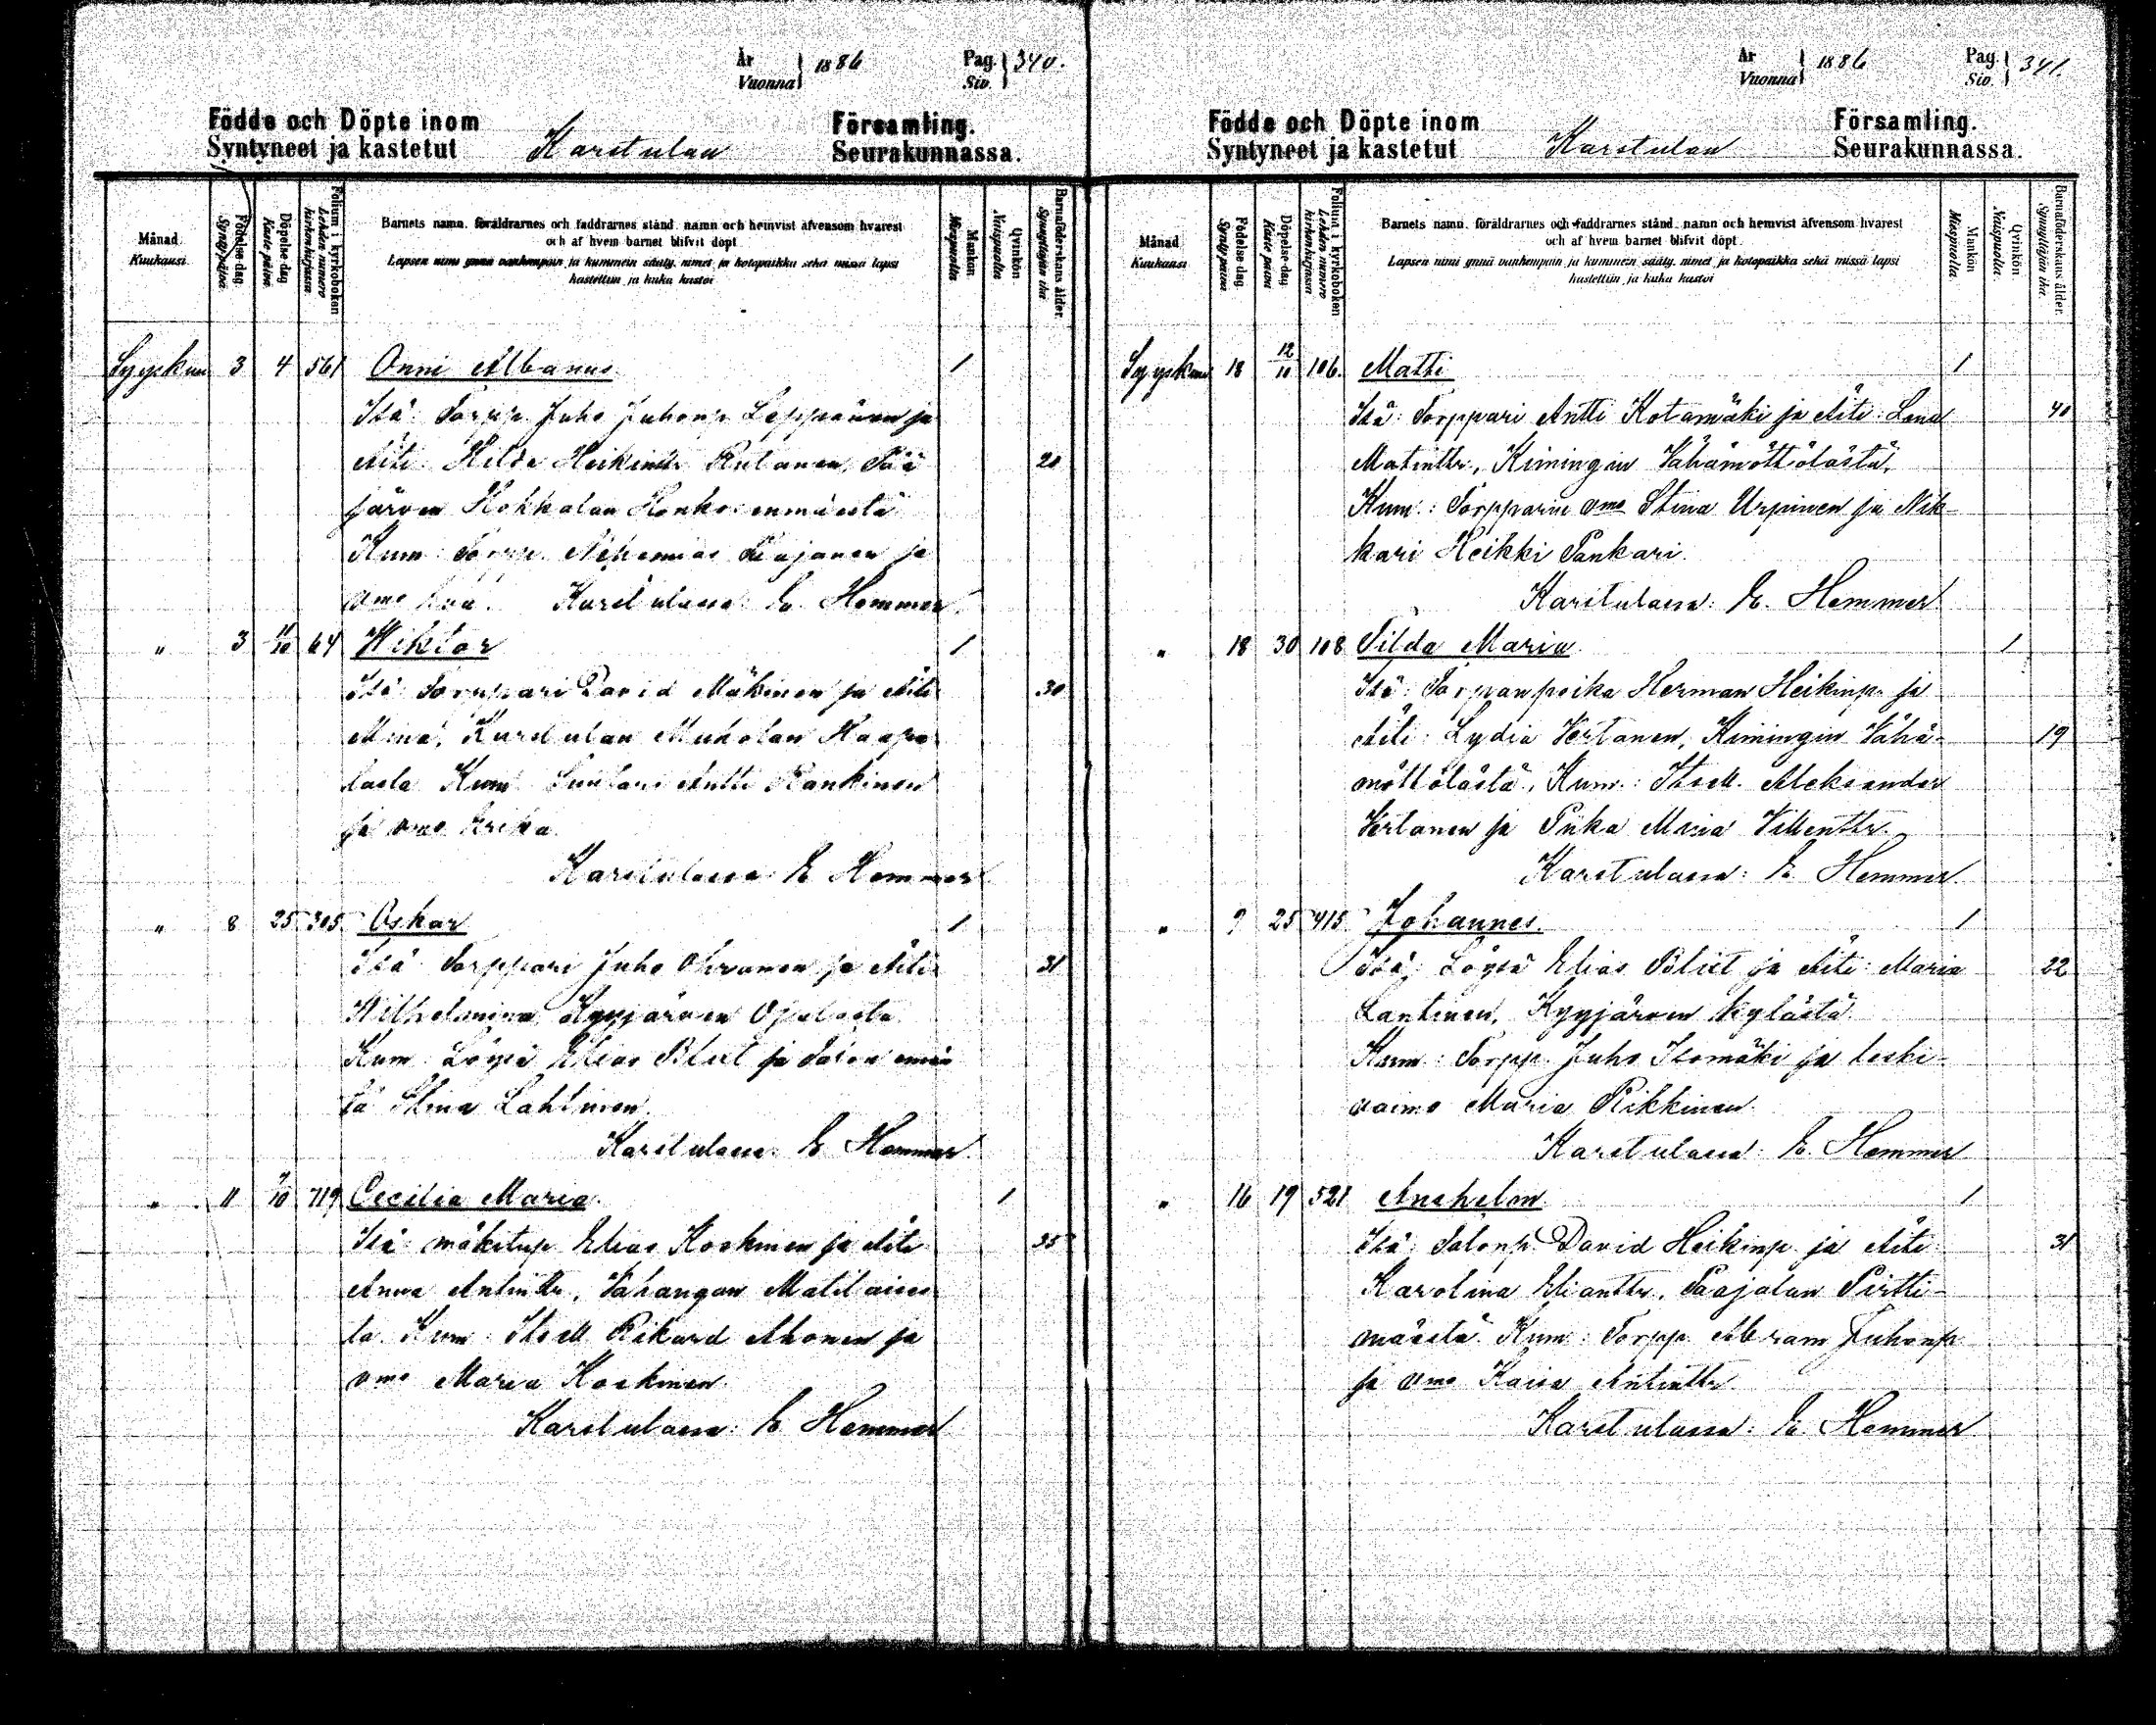 År Vuonna 1886 Pag. Siv. 340.
Födde och Döpte inom Karstulan Församling.
Syntyneet ja kastetut Seurakunnassa.
Månad Kuukausi
Födelse-dag Syntypäivä
Döpelse-dag Kaste päivä
Folium i kyrkoboken Lehden numero kirkonkirjassa
Barnets namn, föräldrarnes och faddrarnes stånd, namn och hemvist äfvensom hvarest
och af hvem barnet blifvit döpt
Lapsen nimi ynnä vanhempain ja kummein sääty, nimet ja kotopaikka sekä missä lapsi
kastettiin ja kuka kastoi
Mankön Miespuolta
Qvinkön Naispuolta
Barnaföderskans ålder. Synnyttäjän ikä
Syyskuu 3 4 561 Onni Albanus 1
Isä: Torpp. Juho Juhonp. Leppänen ja
Äiti: Hilda Heikintr. 20
järven
Kum: Torpp. Nehemias ja
vmo Karstulassa: E. Hemmer
" 3 11/10 64 Wiktor 1
Isä: Torppari David Mäkinen ja Äiti 30
Miina, Karstulan
Kum: Antti Rankinen
ja vmo
Karstulassa E Hemmer
" 8 25 305 Oskar 1
Isä: Torppari Juho ja Äiti 31
Wilhelmina, Kyyjärven
Kum: Löysä Elias ja Talon emän
tä Stina Lahtinen.
Karstulassa: E Hemmer.
" 11 7/10 719 Cecilia Maria. 1
Isä: mäkitup Elias Koskinen ja Äiti 35
Anna Antintr., Vahangan
ta Kum: Itsell. Rikard Ahonen ja
vmo Maria Koskinen.
Karstulassa: E Hemmer
År Vuonna 1886 Pag. Siv. 341.
Födde och Döpte inom Karstulan Församling.
Syntyneet ja kastetut Seurakunnassa.
Månad Kuukausi
Födelse-dag Syntypäivä
Döpelse-dag Kaste päivä
Folium i kyrkoboken Lehden numero kirkonkirjassa
Barnets namn, föräldrarnes och faddrarnes stånd, namn och hemvist äfvensom hvarest
och af hvem barnet blifvit döpt.
Lapsen nimi ynnä vanhempain ja kummein sääty, nimet ja kotopaikka sekä missä lapsi
kastettiin ja kuka kastoi
Mankön Miespuolta
Qvinkön Naispuolta
Barnaföderskans ålder. Synnyttäjän ikä
Syyskuu 18 12/10 106. Matti 1
Isä: Torppari Antti Kotamäki ja Äiti: Lena 40
Matintr., Kimingin Vähämöttölästä,
Kum.: Torpparin vmo Stina Urpinen ja Nik-
kari Heikki Pankari.
Karstulassa: E. Hemmer
" 18 30 108 Tilda Maria 1
Isä: Torpanpoika Herman Heikinp. ja
Äiti: Lydia Vertanen, Kimingin Vähä- 19
möttölästä, Kum.: Itsell. Aleksander
Vertanen ja Piika Miina Villentr.
Karstulassa: E Hemmer.
" 9 25 415 Johannes. 1
Isä: Löysä Elias ja Äiti: Maria 22
Lantinen, Kyyjärven kylästä.
Kum.: Torpp. Juho Isomäki ja leski-
vaimo Maria Pikkinen.
Karstulassa: E. Hemmer
" 16 19 521 Anshelm 1
Isä: Talonp. David Heikinp. ja Äiti 31
Karolina Eliantr., Paajalan Pirtti-
mäestä Kum.: Torpp. Abram Juhonp
ja vmo Kaisa Antintr.
Karstulassa: E. Hemmer